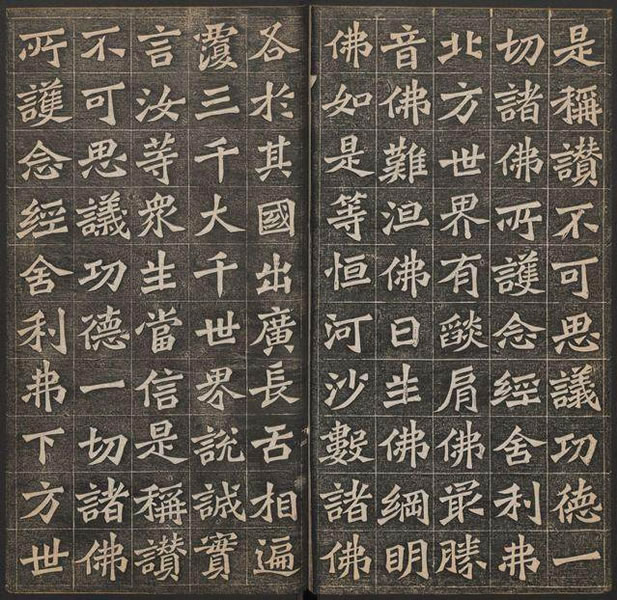 是稱讚不可思議功德一
切諸佛所護念經舍利弗
北方世界有燄肩佛最勝
音佛難沮佛日生佛綱明
佛如是等恒河沙數諸佛
各於其國出廣長舌相遍
覆三千大千世界說誠實
言汝等眾生當信是稱讚
不可思議功德一切諸佛
所護念經舍利弗下方世